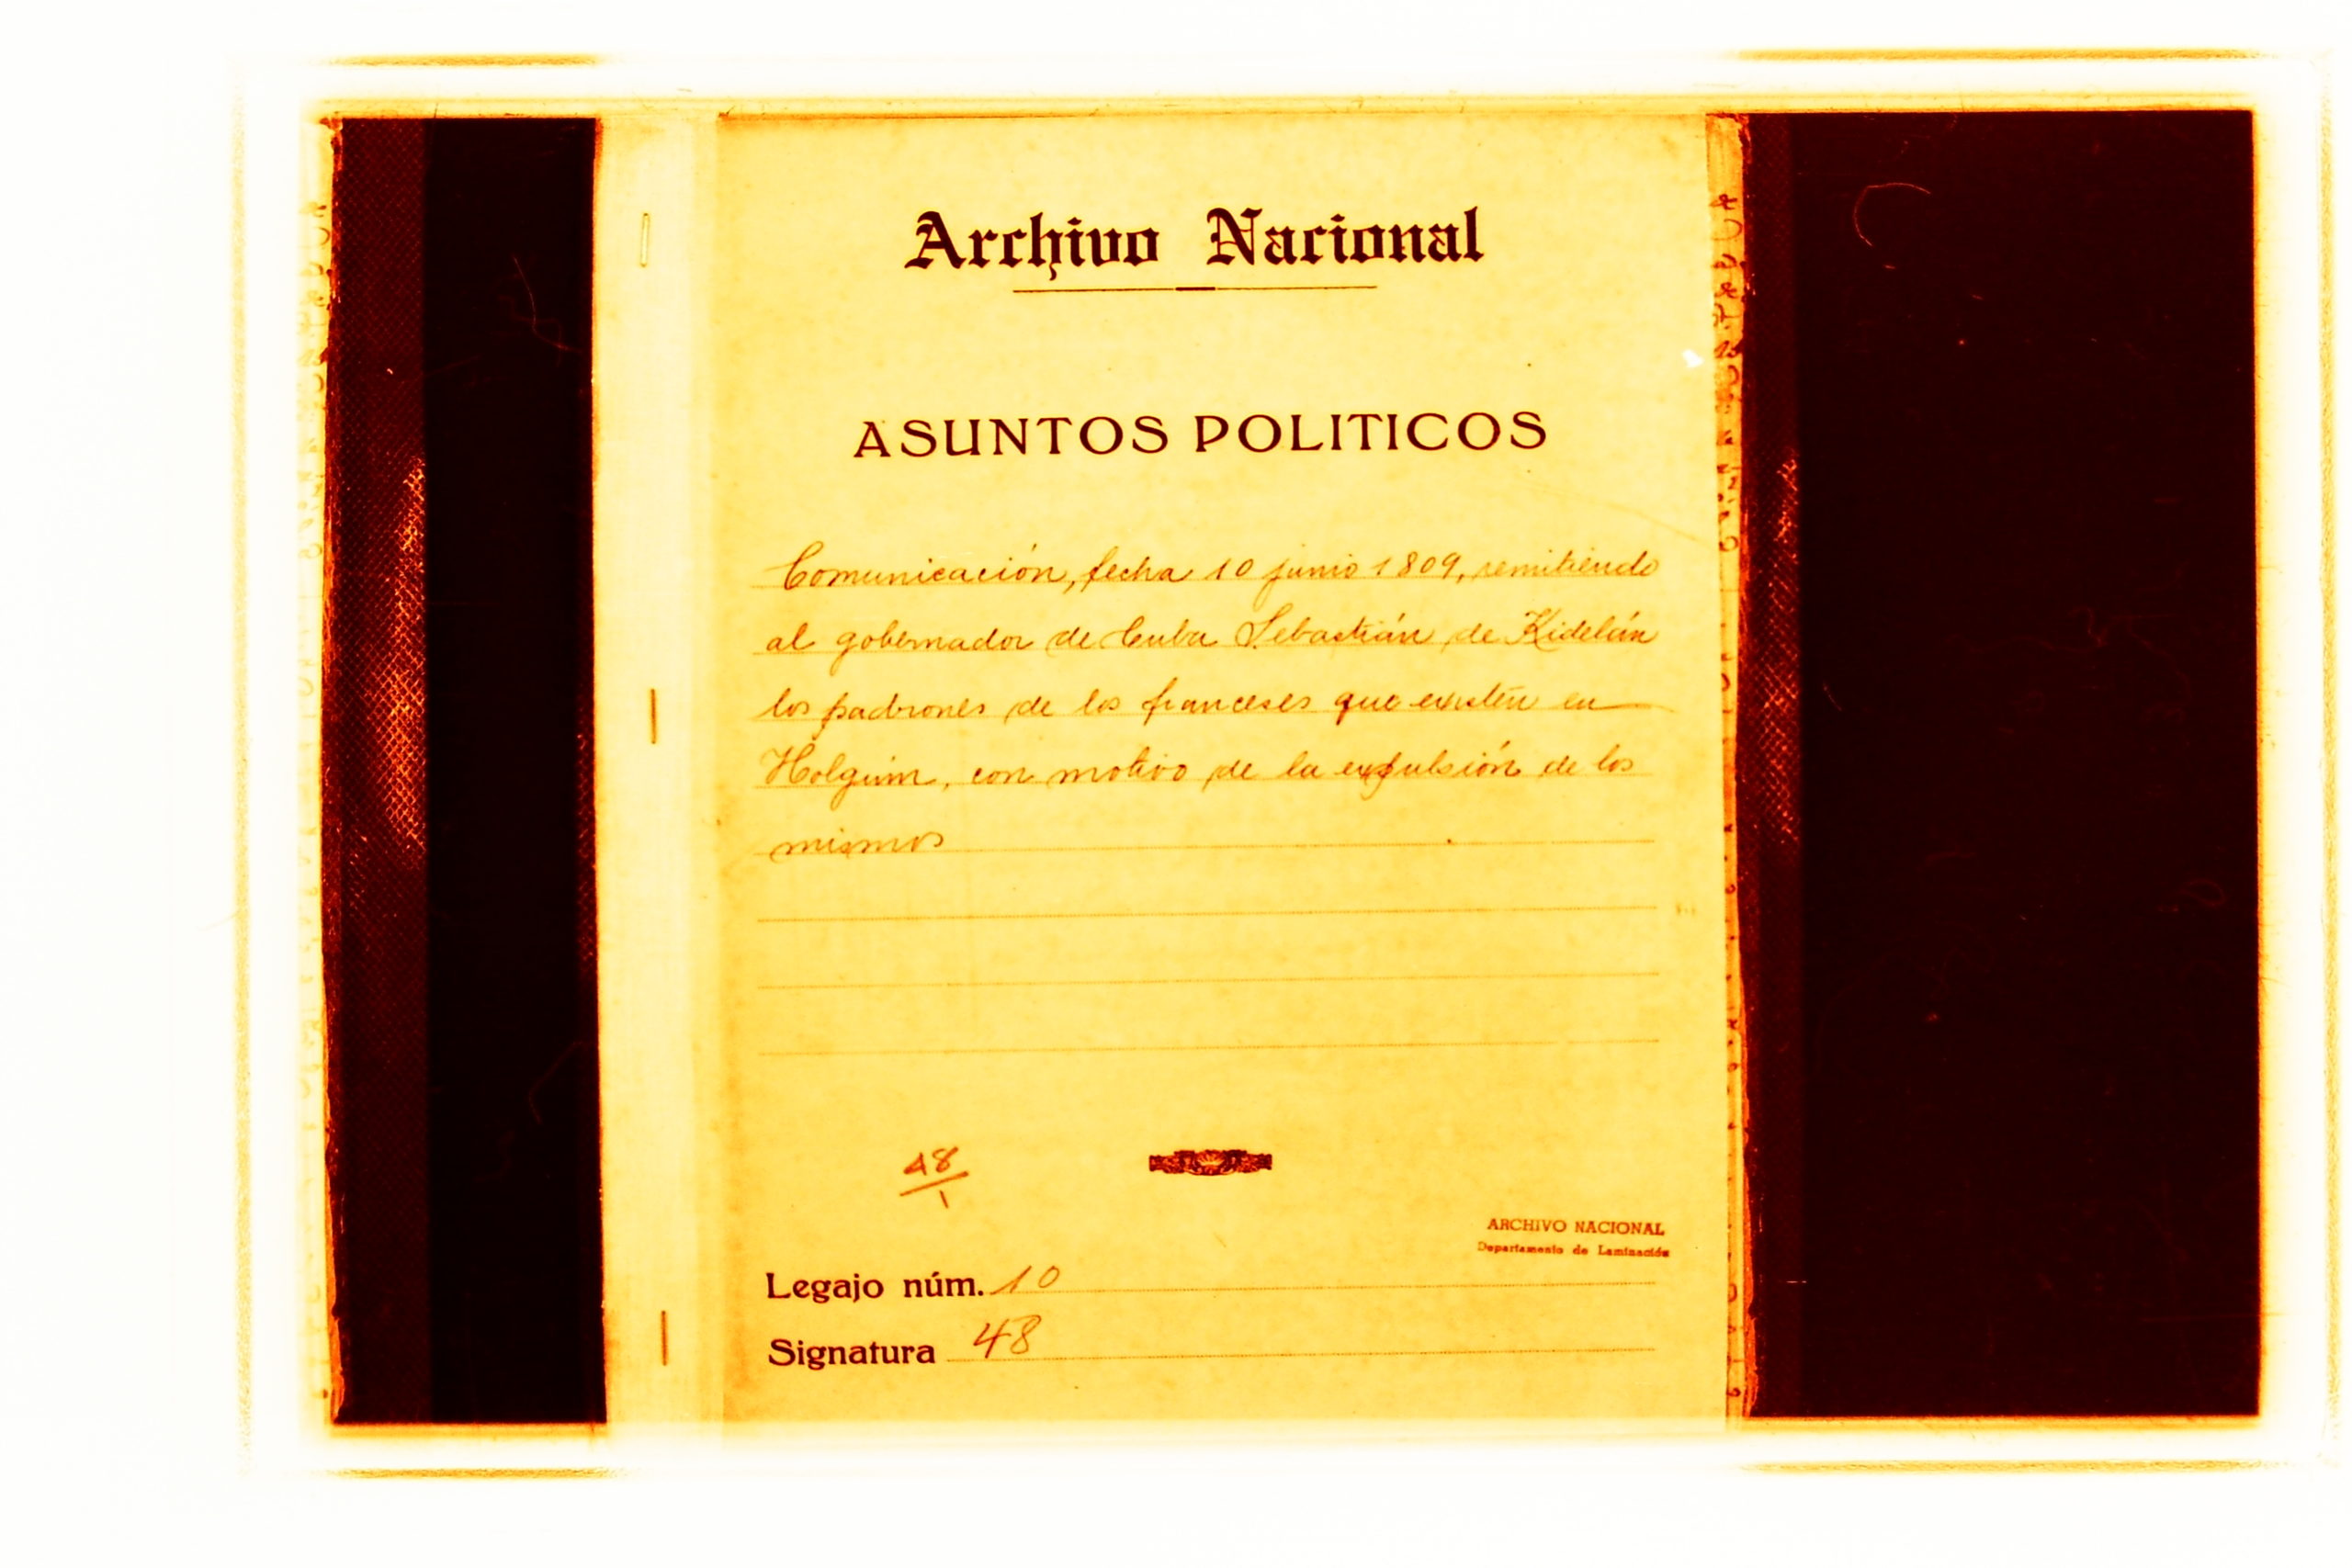 Archivo Nacional
ASUNTOS POLITICOS
Comunicación, fecha 10 junio 1809, remitiendo
al gobernador de Cuba Sebastián de Kidelán
los padrones de los franceses que existen en
Holguín, con motivo de la expulsión de los
mismos
48
1
ARCHIVO NACIONAL
Departamento de Laminación
Legajo núm. 10
Signatura 48